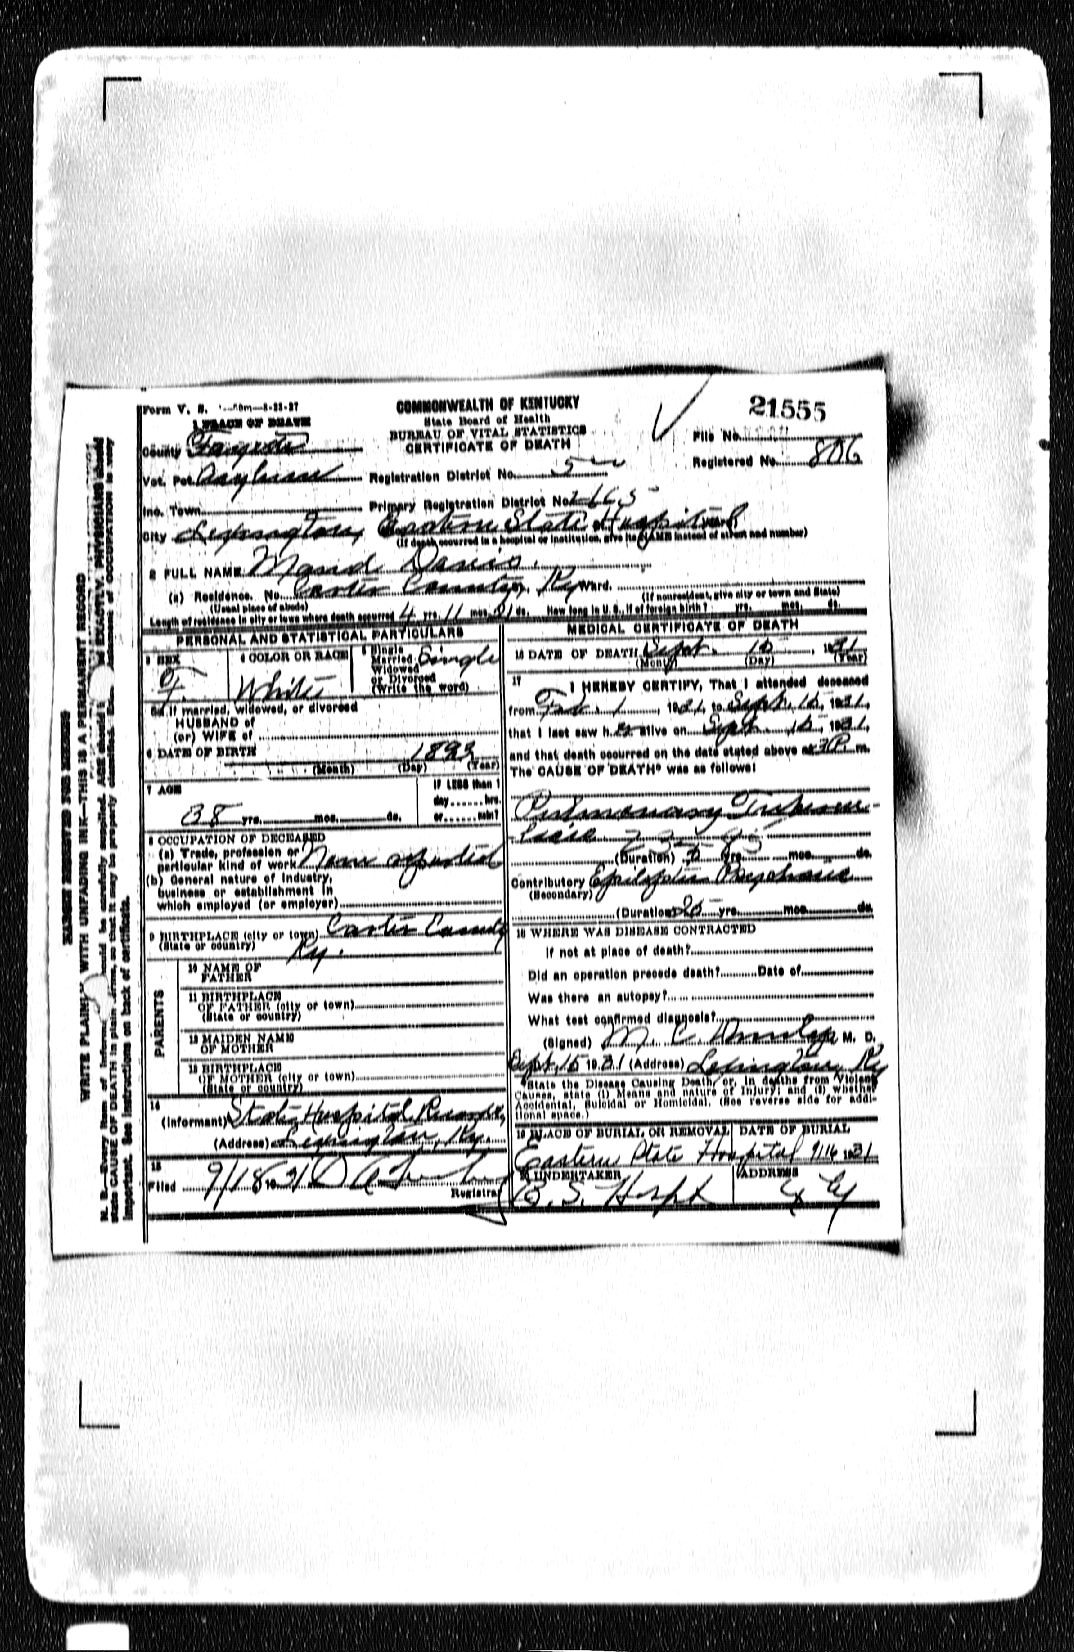 Form V. S. 1—50m—8-23-27
COMMONWEALTH OF KENTUCKY
State Board of Health
BUREAU OF VITAL STATISTICS
CERTIFICATE OF DEATH
21555
File No.
Registered No. 806
1 PLACE OF DEATH
County Fayette
Vot. Pct. Asylum
Registration District No.
Inc. Town
Primary Registration District No. 2165
City Lexington, Eastern State Hospital
(If death occurred in a hospital or institution, give its NAME instead of street and number)
2 FULL NAME Maud Davis.
(a) Residence. No. Carter County, Ky Ward.
(Usual place of abode) (If nonresident, give city or town and State)
Length of residence in city or town where death occurred 4 yrs. 11 mos. 21 ds. How long in U. S., if of foreign birth? yrs. mos. ds.
PERSONAL AND STATISTICAL PARTICULARS
3 SEX F
4 COLOR OR RACE White
5 Single Married Widowed or Divorced (Write the word) Single
5a If married, widowed, or divorced
HUSBAND of
(or) WIFE of
6 DATE OF BIRTH 1893
(Month) (Day) (Year)
7 AGE 38 yrs. mos. ds.
If LESS than 1 day hrs. or min?
8 OCCUPATION OF DECEASED
(a) Trade, profession or particular kind of work None reported
(b) General nature of industry, business or establishment in which employed (or employer)
9 BIRTHPLACE (city or town) Carter County
(State or country) Ky.
PARENTS
10 NAME OF FATHER
11 BIRTHPLACE OF FATHER (city or town)
(State or country)
12 MAIDEN NAME OF MOTHER
13 BIRTHPLACE OF MOTHER (city or town)
(State or country)
14
(Informant) State Hospital Records,
(Address) Lexington, Ky.
15
Filed 9/18 1931
Registrar
MEDICAL CERTIFICATE OF DEATH
16 DATE OF DEATH Sept. 15, 1931
(Month) (Day) (Year)
17 I HEREBY CERTIFY, That I attended deceased
from Feb. 1, 1931, to Sept. 15, 1931,
that I last saw h er alive on Sept. 15, 1931,
and that death occurred on the date stated above at 3P. m.
The CAUSE OF DEATH* was as follows:
Pulmonary Tubercu-
losis
(Duration) yrs. mos. ds.
Contributory Epileptic Psychosis
(Secondary)
(Duration) 25 yrs. mos. ds.
18 WHERE WAS DISEASE CONTRACTED
If not at place of death?
Did an operation precede death? Date of
Was there an autopsy?
What test confirmed diagnosis?
(Signed) M. C. Dunlap M. D.
Sept. 15 1931 (Address) Lexington, Ky
*State the Disease Causing Death, or, in deaths from Violent
Causes, state (1) Means and nature of Injury; and (2) whether
Accidental, Suicidal or Homicidal. (See reverse side for addi-
tional space.)
19 PLACE OF BURIAL OR REMOVAL Eastern State Hospital
DATE OF BURIAL 9/16 1931
20 UNDERTAKER E. S. Hospt
ADDRESS Lex Ky
MARGIN RESERVED FOR BINDING
WRITE PLAINLY WITH UNFADING INK—THIS IS A PERMANENT RECORD
N. B.—Every item of information should be carefully supplied. AGE should be stated EXACTLY. PHYSICIANS should
state CAUSE OF DEATH in plain terms, so that it may be properly classified. Exact statement of OCCUPATION is very
important. See instructions on back of certificate.